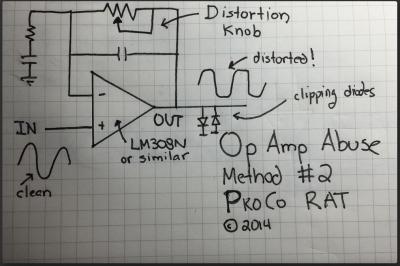 Distortion
Knob
distorted!
clipping diodes
-
+
IN
OUT
LM308N
or similar
clean
Op Amp Abuse
Method #2
PROCO RAT
© 2014